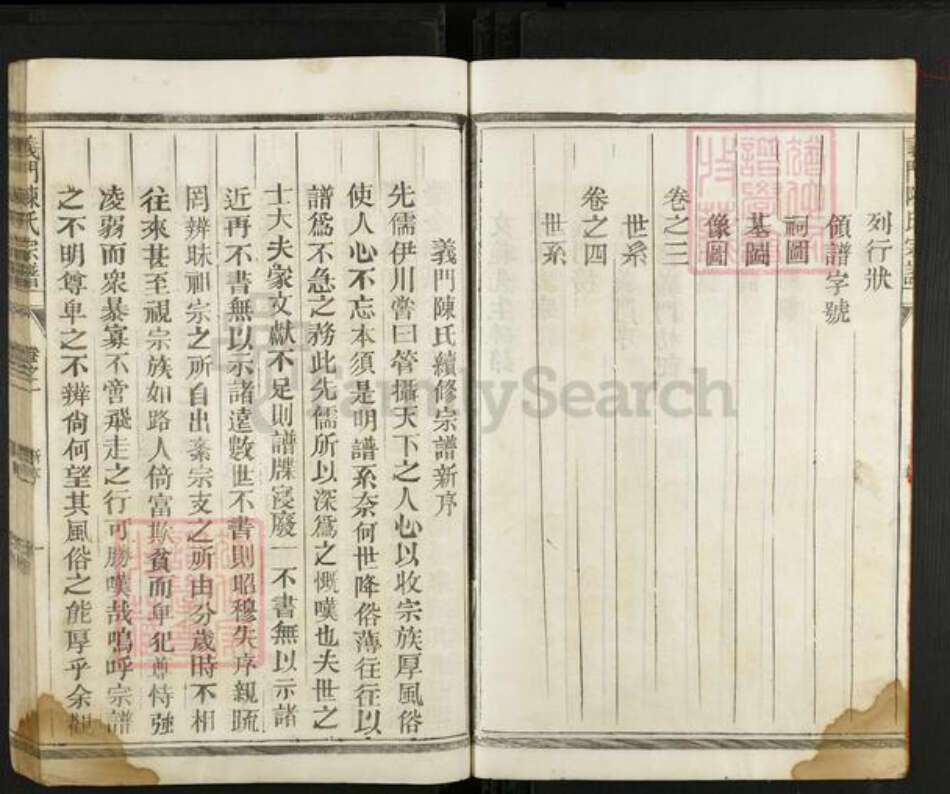 列行狀
領譜字號
祠圖
墓圖
像圖
卷之三
世系
卷之四
世系
義門陳氏續修宗譜新序
先儒伊川嘗曰管攝天下之人心以收宗族厚風俗
使人心不忘本須是明譜系奈何世降俗薄往往以
譜爲不急之務此先儒所以深爲之慨嘆也夫世之
士大夫家文獻不足則譜牒寢廢一不書無以示諸
近再不書無以示諸遠數世不書則昭穆失序親疏
罔辨昧祖宗之所自出紊宗支之所由分歲時不相
往來甚至視宗族如路人倚富欺貧而卑犯尊恃强
凌弱而衆暴寡不啻飛走之行可勝嘆哉嗚呼宗譜
之不明尊卑之不辨尙何望其風俗之能厚乎余觀
義門陳氏宗譜
卷之一
FamilySearch